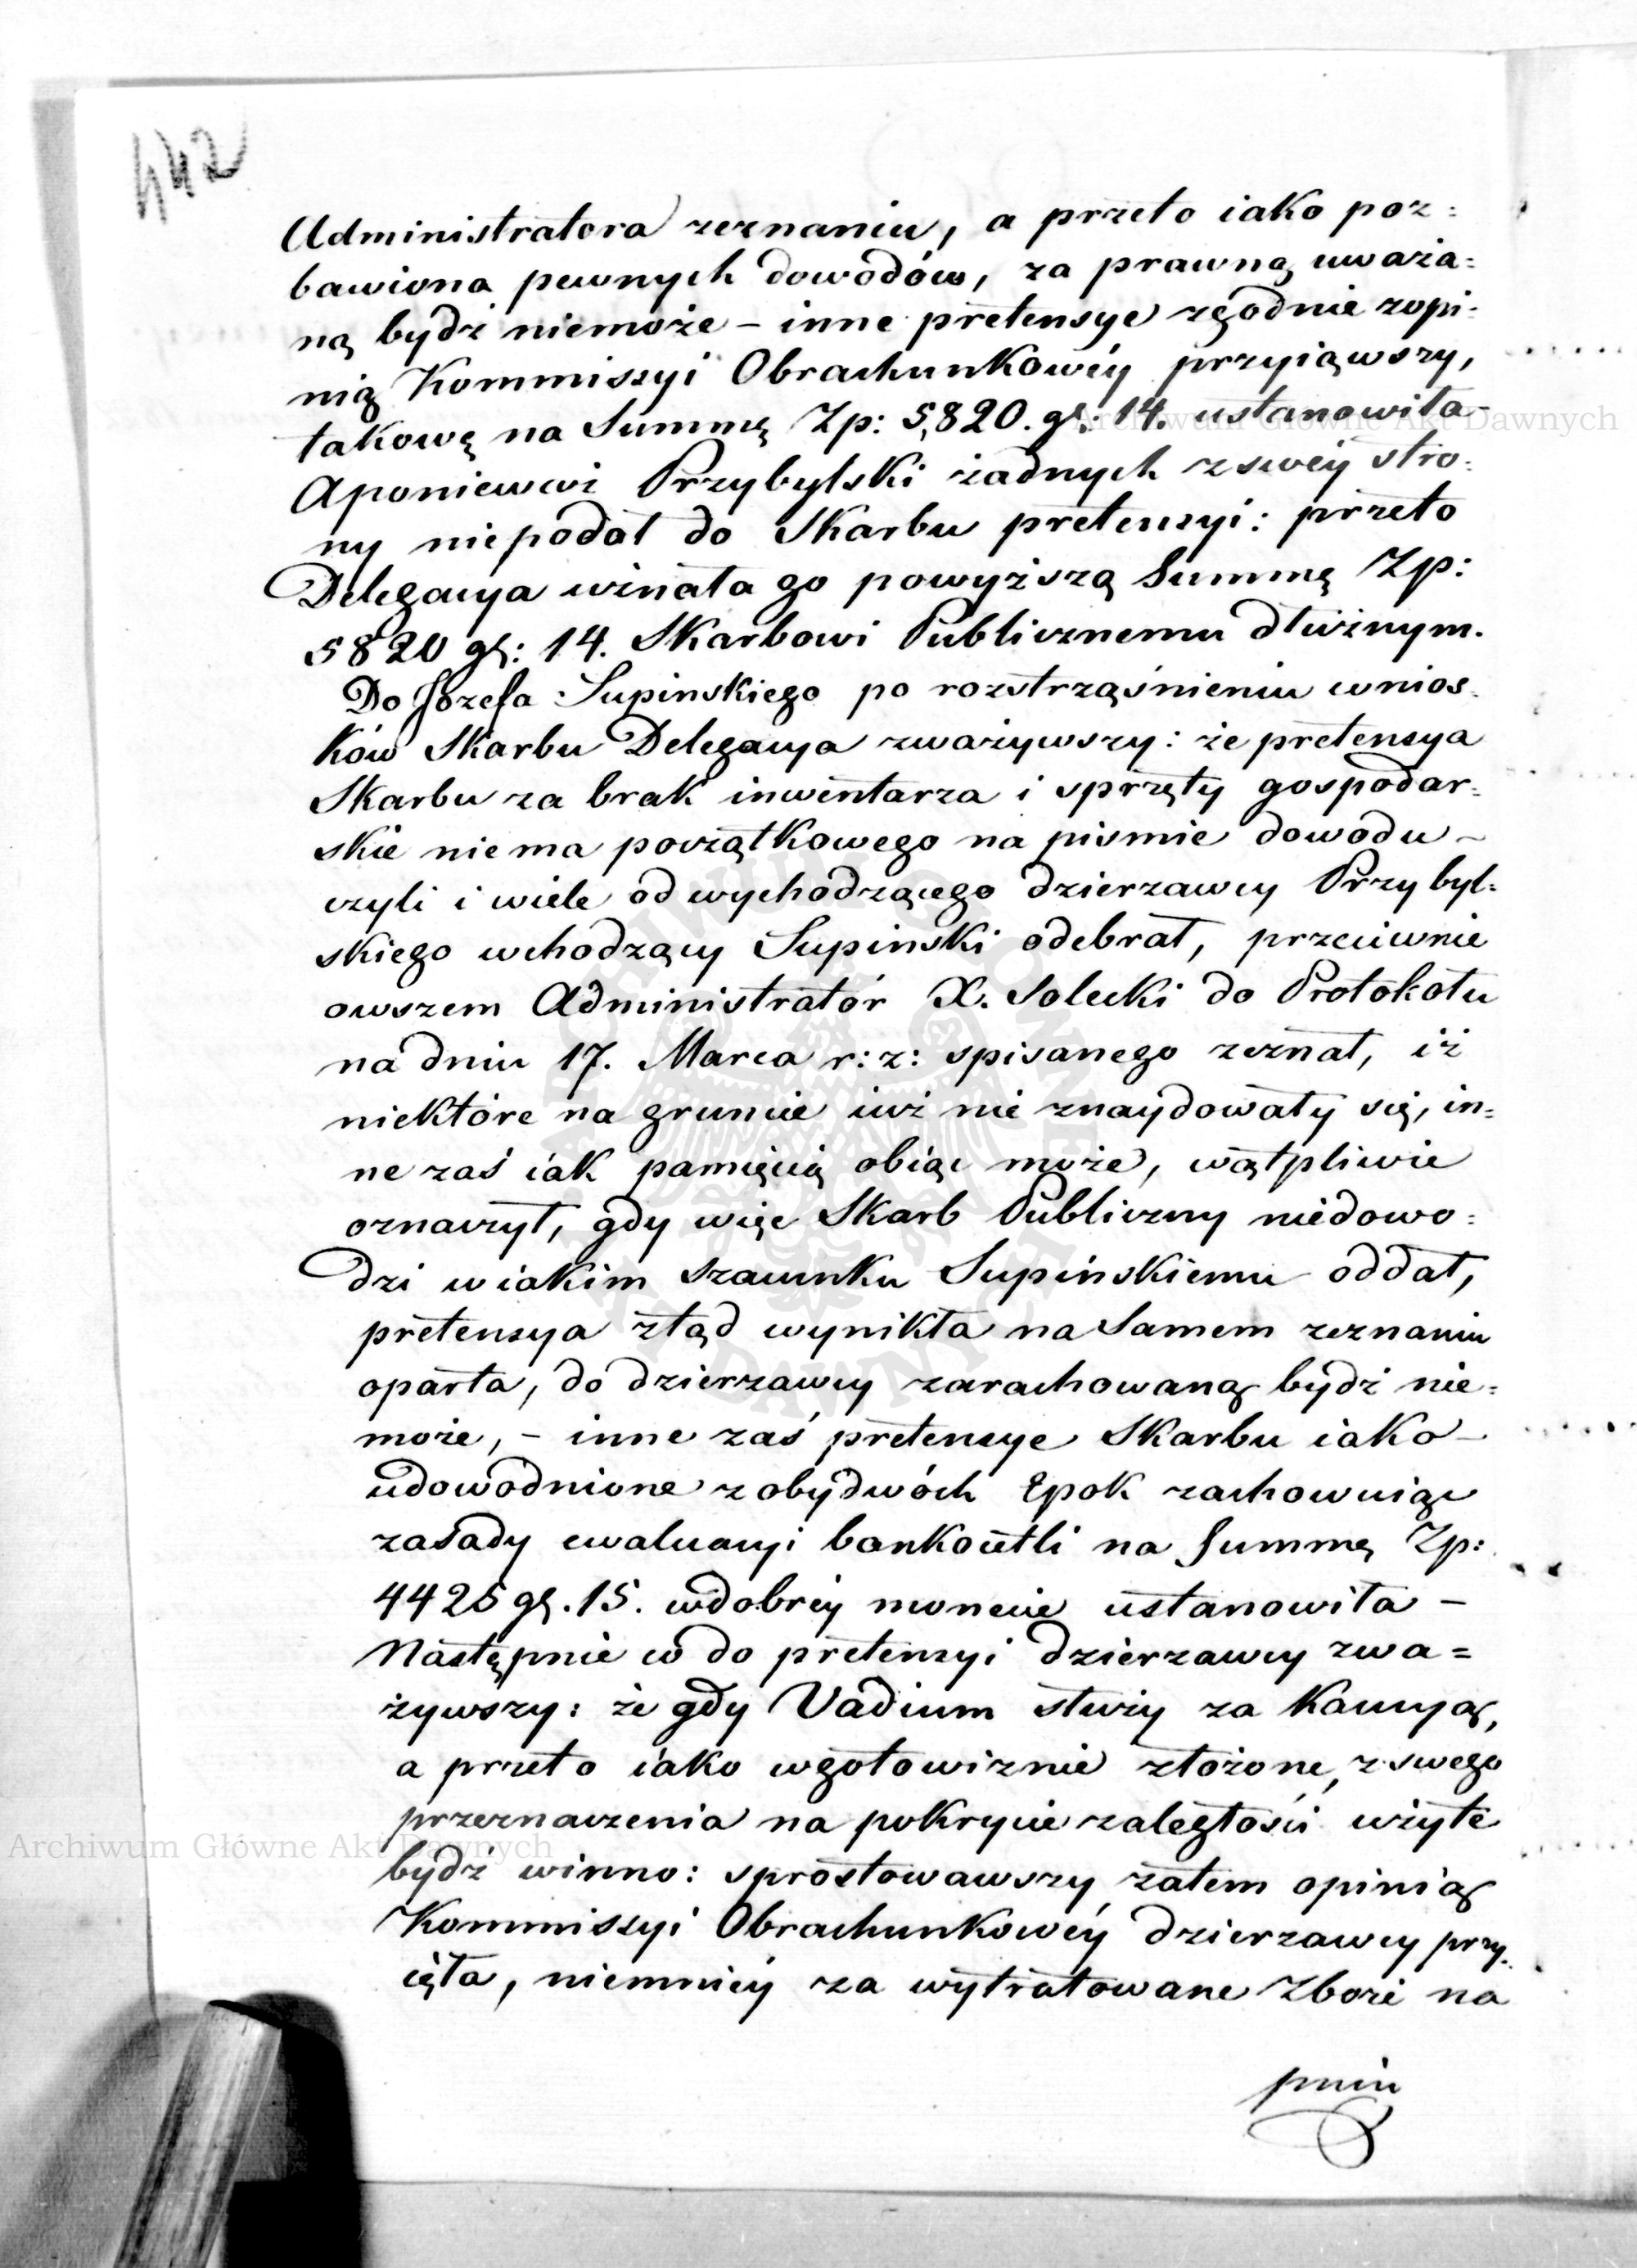 442
Administratora zeznaniu, a przeto iako poz=
bawiona pewnych dowodów, za prawną uważa=
ną bydź niemoże – inne pretensye zgodnie zopi=
nią Kommissyi Obrachunkowéy przyiąwszy,
takowę na Summę Zp: 5,820. gl: 14. ustanowiła –
Aponieważ Przybylski żadnych zswéy stro=
ny niepodał do Skarbu pretensyi: przeto
Delegacya uznała go powyższą Summę Zp:
5820 gl: 14. Skarbowi Publicznemu dłużnym.
Do Józefa Supinskiego po roztrząśnieniu wnios=
ków Skarbu Delegacya zważywszy: że pretensya
Skarbu za brak inwentarza i sprzęty gospodar=
skie niema początkowego na pismie dowodu –
czyli i wiele od wychodzącego dzierzawcy Przybyl=
skiego wchodzący Supinski odebrał, przeciwnie
owszem Administratór X. Solecki do Protokołu
na dniu 17. Marca r: z: spisanego zeznał, iż
niektóre na gruncie iuż nie znaydowały się, in=
ne zaś iak pamięcią obiąc może, wątpliwie
oznaczył, gdy więc Skarb Publiczny niedowo=
dzi w iakim szacunku Supińskiemu oddał,
pretensya ztąd wynikła na Samem zeznaniu
oparta, do dzierzawcy zarachowaną bydź nie=
może, – inne zaś pretensye Skarbu iako –
udowodnione z obydwóch Epok zachowuiąc
zasady ewaluacyi bankocetli na Summę Zp:
4425 gl. 15. wdobréy monecie ustanowiła –
Następnie co do pretensyi dzierzawcy zwa=
żywszy: że gdy Vadium służy za Kaucyą,
a przeto iako wgotowiznie złożone, z swego
przeznaczenia na pokrycie zaległości użyte
bydź winno: sprostowawszy zatem opinią
Kommissyi Obrachunkowéy dzierzawcy przy=
ięła, niemniéy za wytratowane Zboże na
pniu
Archiwum Główne Akt Dawnych
Archiwum Główne Akt Dawnych